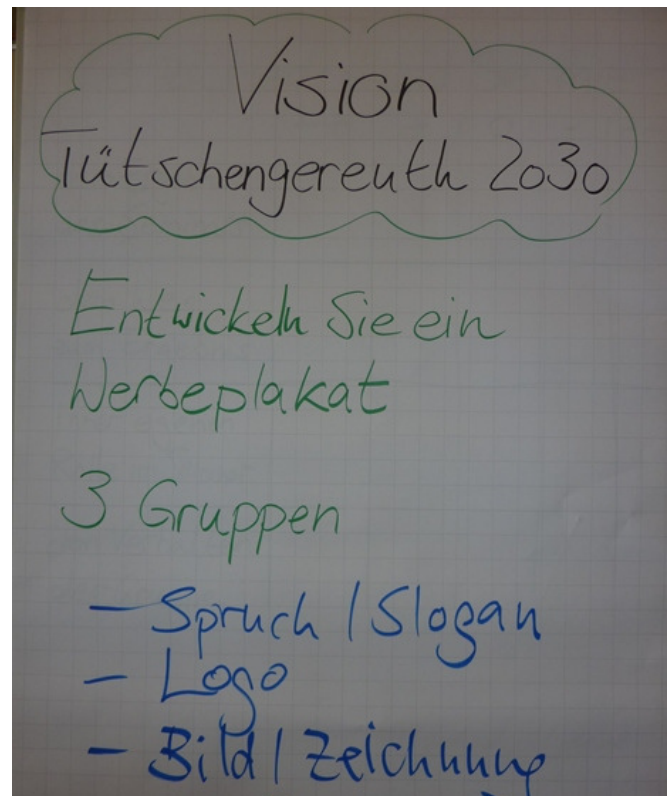 Vision
Tütschengereuth 2030
Entwickeln Sie ein
Werbeplakat
3 Gruppen
- Spruch / Slogan
- Logo
- Bild / Zeichnung